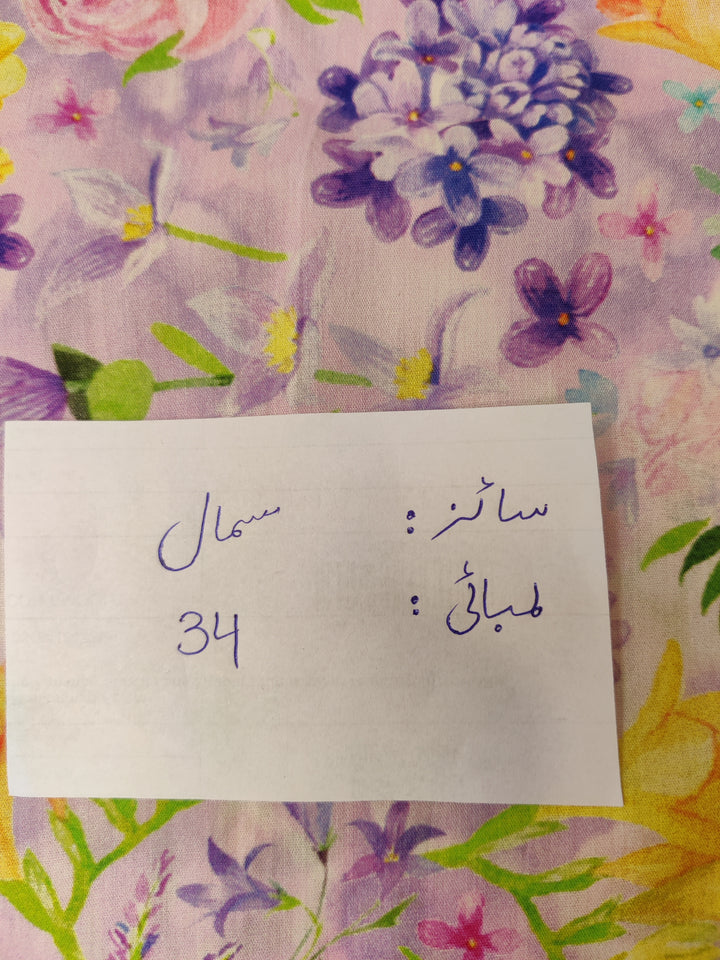 سائز : سمال
لمبائی : 34